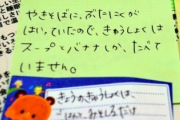 やきそばに、ぶたにくが
はいっていたので、きゅうしょくは
スープとバナナしか、たべて
いません。
きょうのきゅうしょくは、